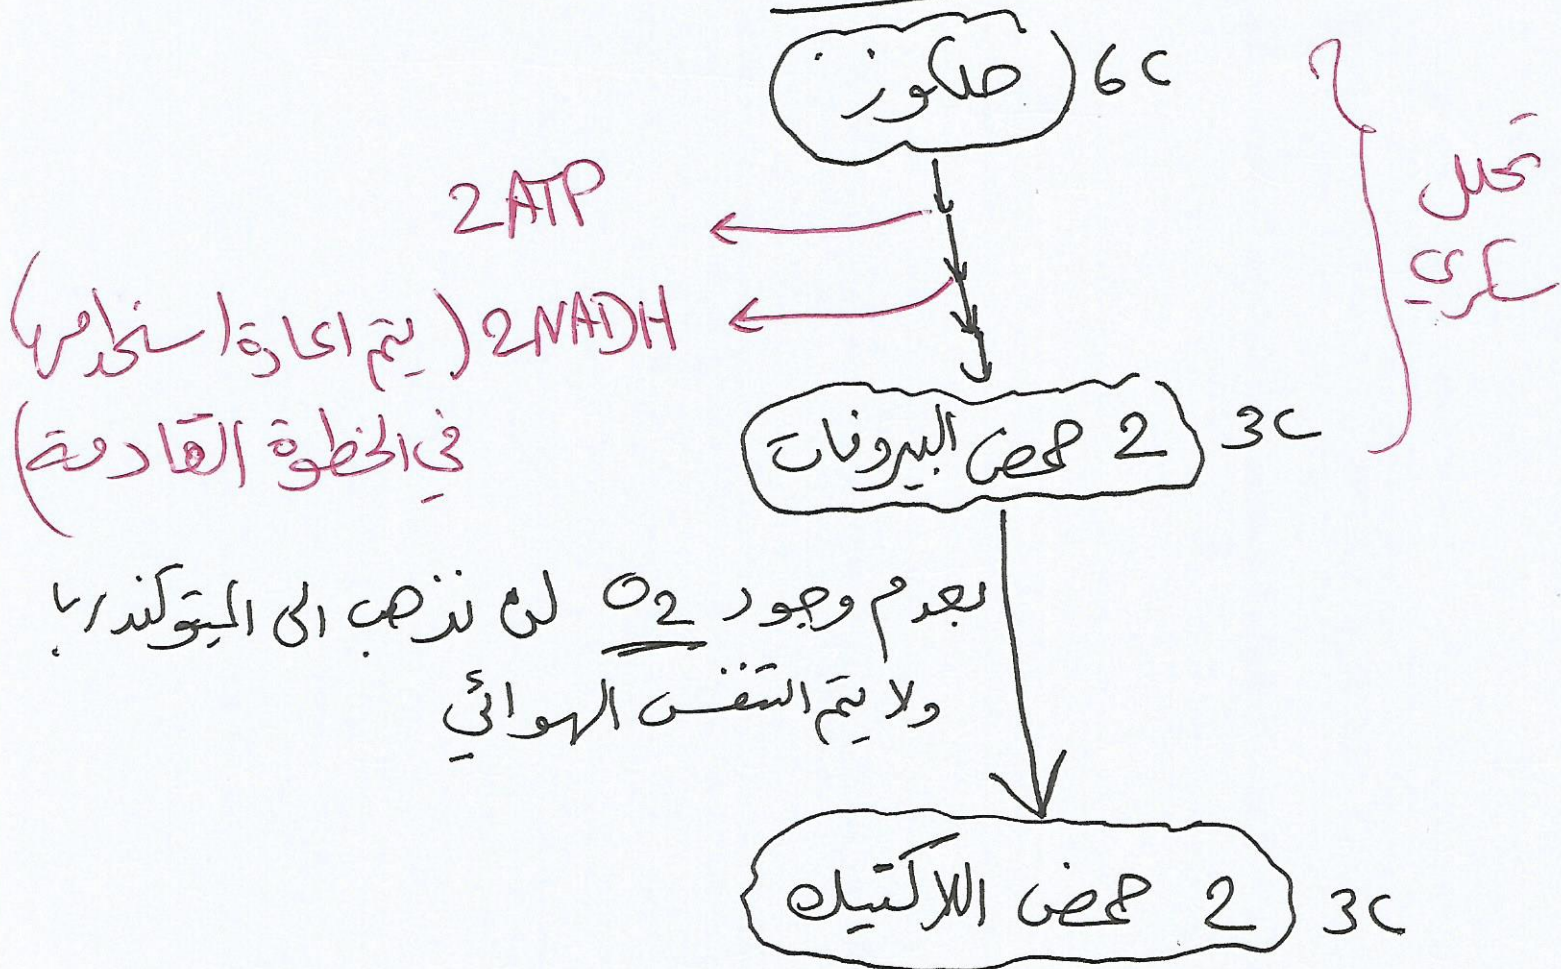 جلكوز 6C
تحلل
سكري
2ATP
2NADH (يتم اعادة استخدامها
في الخطوة القادمة)
2 حمض البيروفات 3C
بعدم وجود O2 لن نذهب الى الميتوكندريا
ولا يتم التنفس الهوائي
2 حمض اللاكتيك 3C